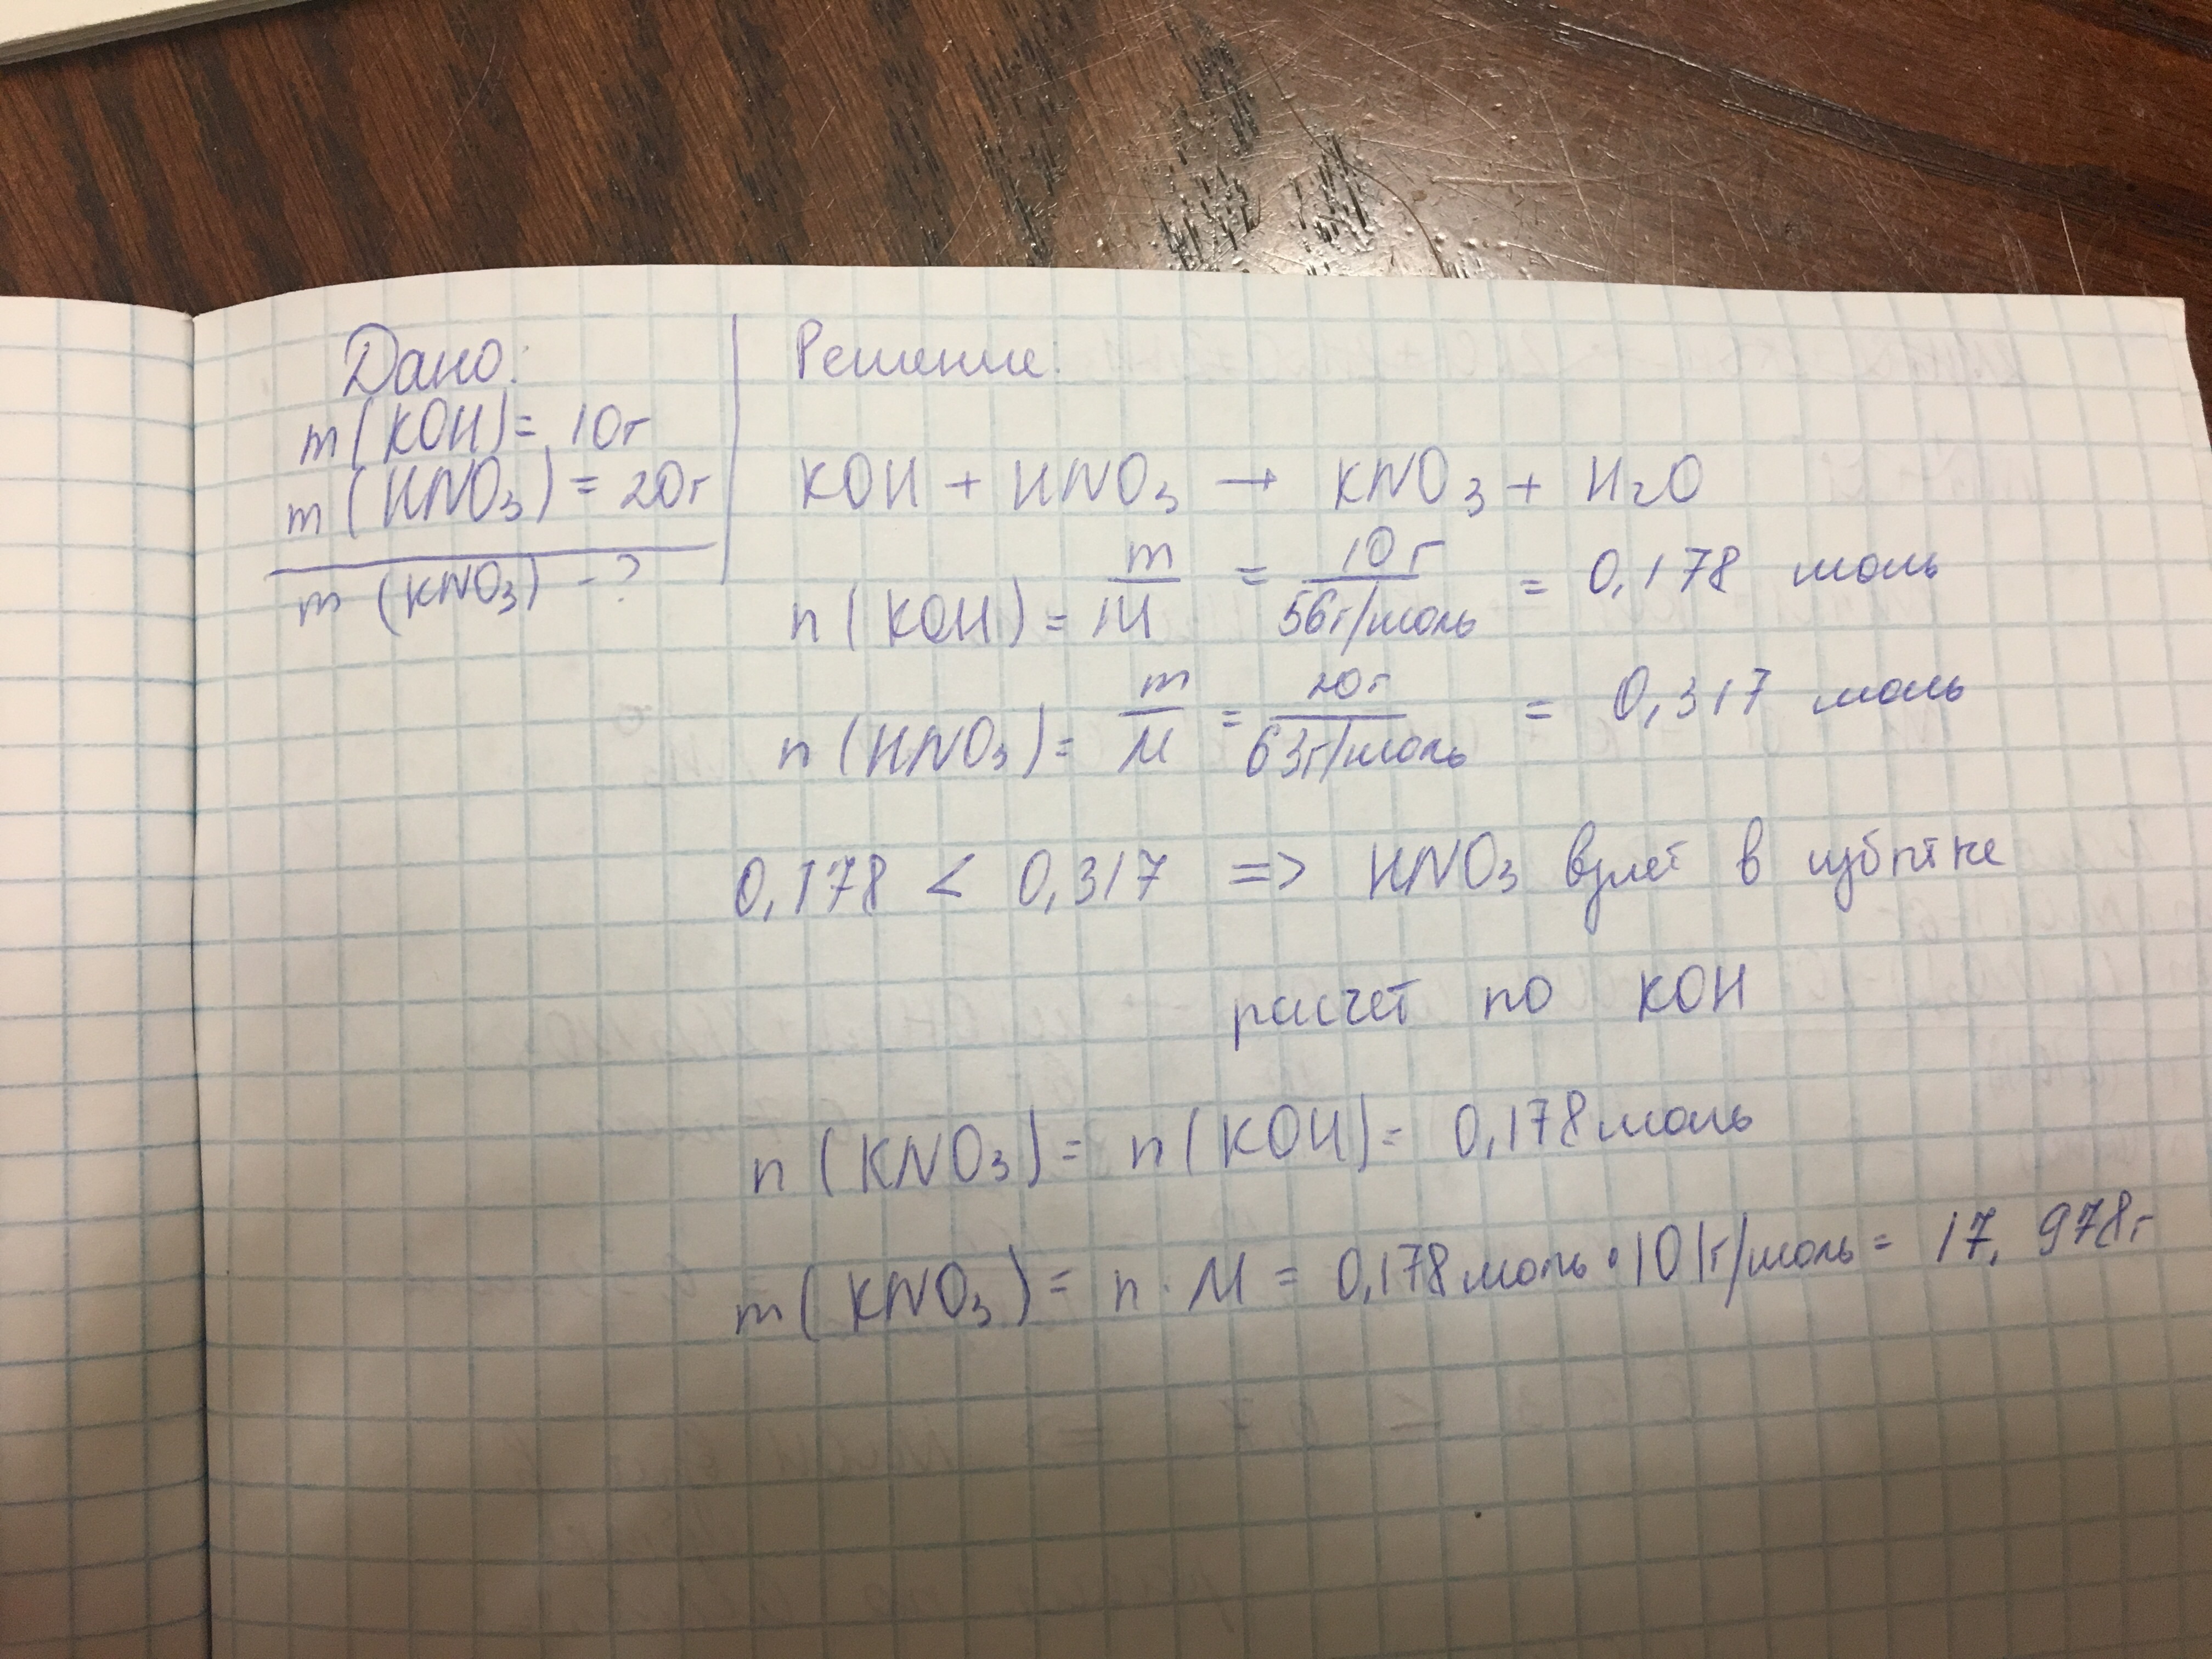 Дано:
m(KOH)= 10г
m(HNO₃) = 20г
m (KNO₃) - ?
Решение:
KOH + HNO₃ → KNO₃ + H₂O
n(KOH) = m/M = 10г/56г/моль = 0,178 моль
n(HNO₃) = m/M = 20г/63г/моль = 0,317 моль
0,178 < 0,317 => HNO₃ взят в избытке
расчет по KOH
n(KNO₃) = n(KOH) = 0,178моль
m(KNO₃) = n · M = 0,178моль · 101г/моль = 17,978г